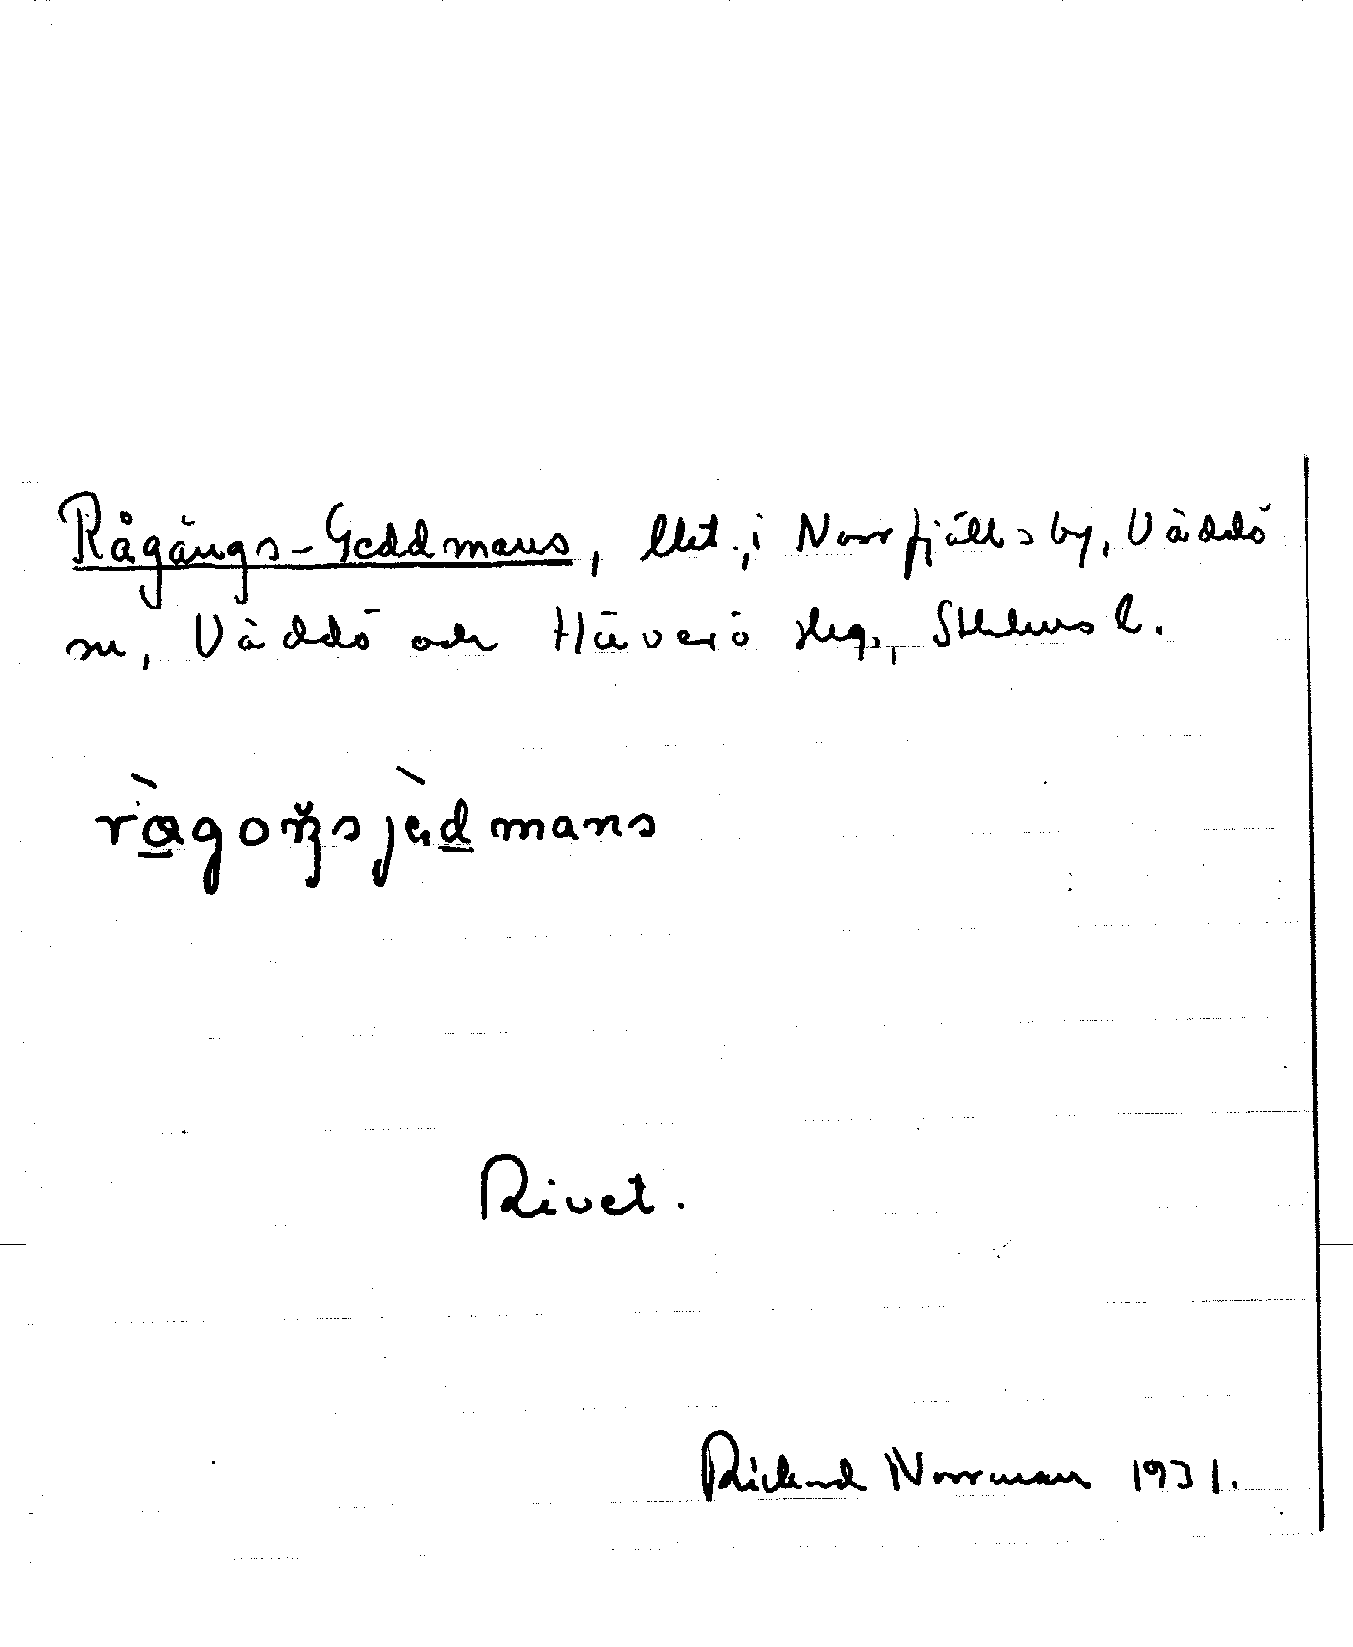 Rågångs-Geddmans, lht. i Norrfjälls by, Väddö
sn, Väddö och Häverö skg, Sthlms l.
ràgoŋsjèdmans
Rivet.
Rickard Norrman 1931.